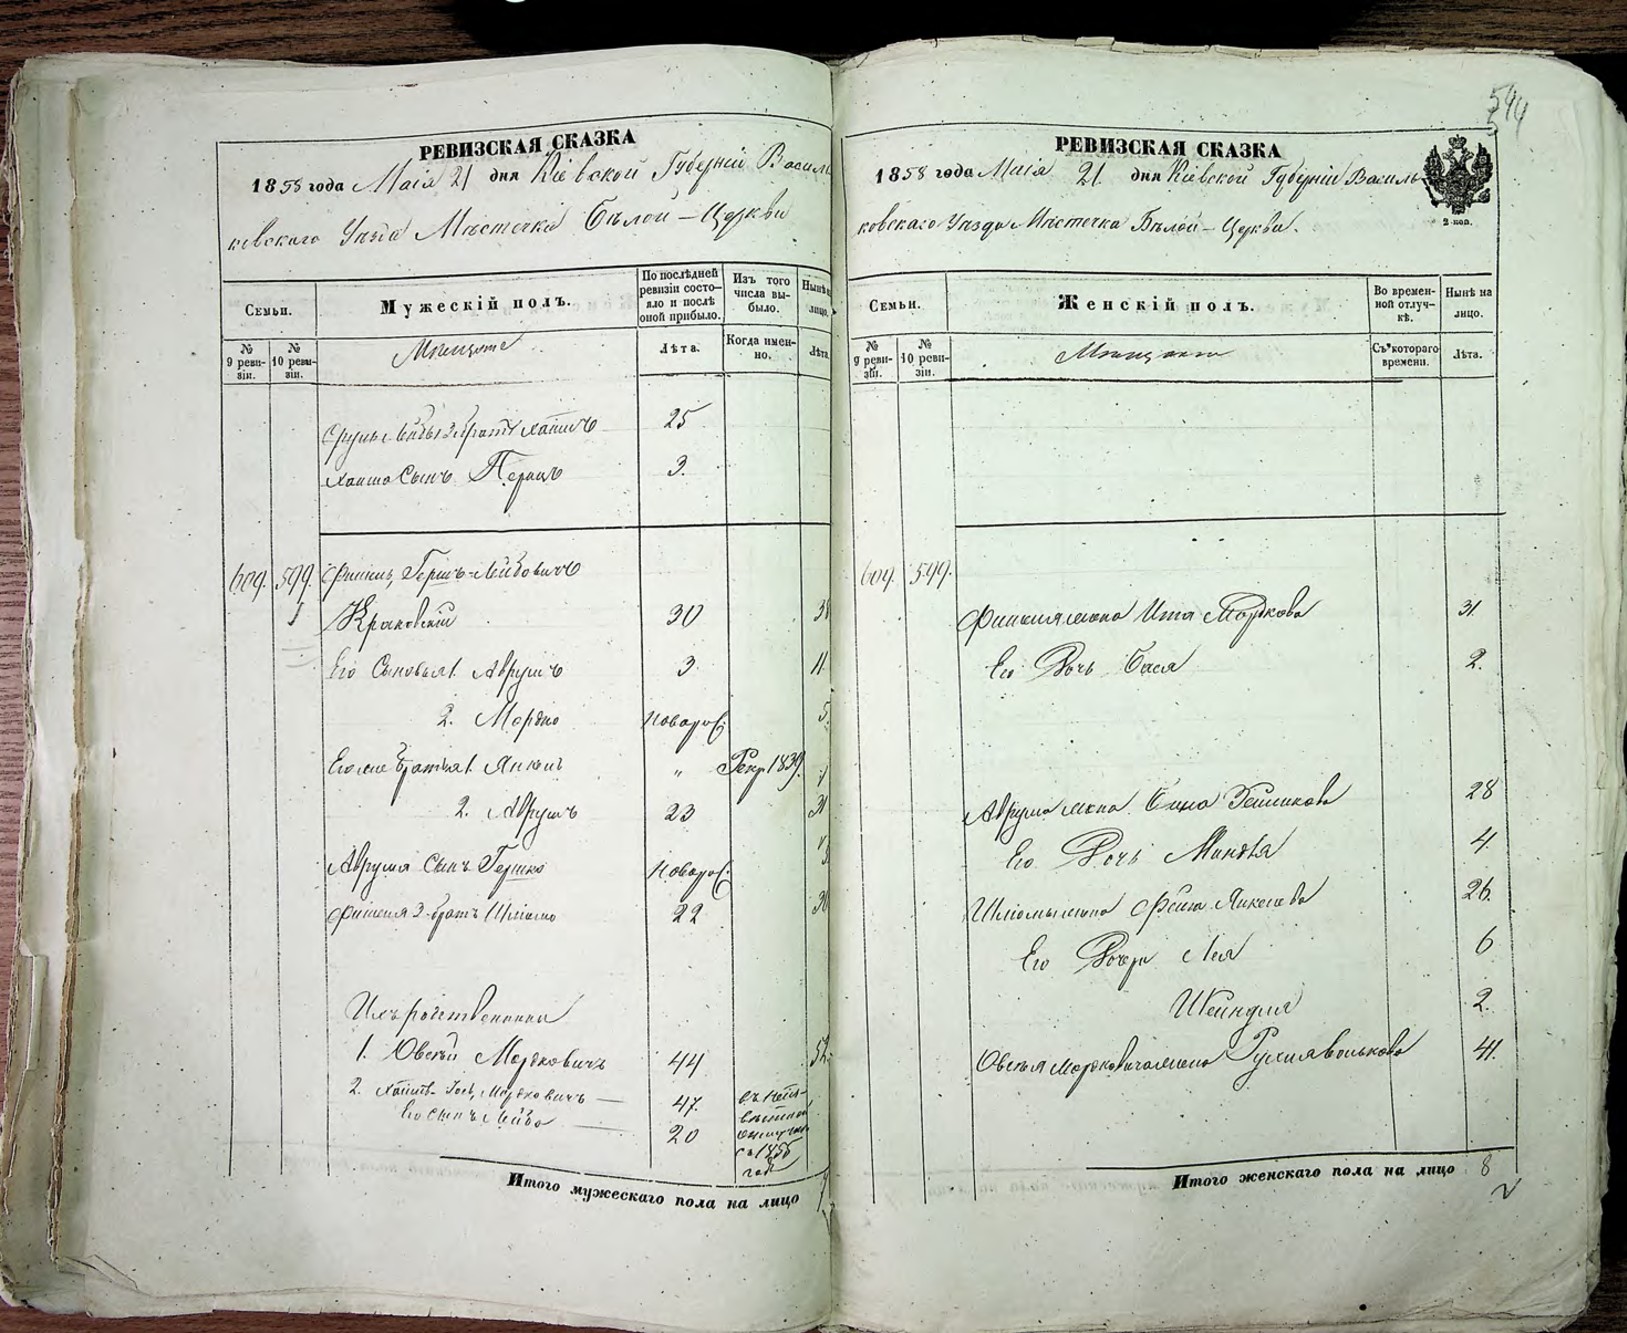 594
РЕВИЗСКАЯ СКАЗКА
1858 года Маія 21 дня Кіевской Губерніи Василь
ковскаго Уѣзда Мѣстечка Бѣлой-Церкви
Семьи.
Мужескій полъ.
По послѣдней ревизіи состо-
яло и послѣ
оной прибыло.
Изъ того
числа вы-
было.
Нынѣ на
лицо.
№
9 реви-
зіи.
№
10 реви-
зіи.
Мѣщане
Лѣта.
Когда имен-
но.
Лѣта.
братъ Хаимъ 25
Хаима Сынъ 3.
609. 599. Фишель Гершъ-Лейбовичъ
Краковскій 30 38
Его Сыновья 1. Аврумъ 3 11
2. Мордко новорож. 5.
Его же братья 1. Янкель " Рекр 1839.
2. Аврумъ 23 31
Аврума Сынъ Гершко новорож.
Фишеля 3-братъ Шлiома 22 30
Ихъ родственники
1. Овсѣй Мордковичъ 44 52.
2. Хаимъ- Мордковичъ 47.
Его сынъ Лейба 20
въ неиз-
вѣстной
отлучкѣ
съ 1850
года
Итого мужескаго пола на лицо
РЕВИЗСКАЯ СКАЗКА
1858 года Маія 21 дня Кіевской Губерніи Василь
2 коп.
ковскаго Уѣзда Мѣстечка Бѣлой-Церкви.
Семьи.
Женскій полъ.
Во времен-
ной отлуч-
кѣ.
Нынѣ на
лицо.
№
9 реви-
зіи.
№
10 реви-
зіи.
Мѣщанки
Съ котораго
времени.
Лѣта.
609. 599.
Фишеля жена Ита Мордкова 31
Его Дочь Бася 2.
Аврума жена 28
Его Дочь Миндля 4
Шлiомы жена Фейга Янкелева 26.
Его Дочери Лея 6
Шейндля 2.
Овсѣя Мордковича жена Рухля Волькова 41.
Итого женскаго пола на лицо 8